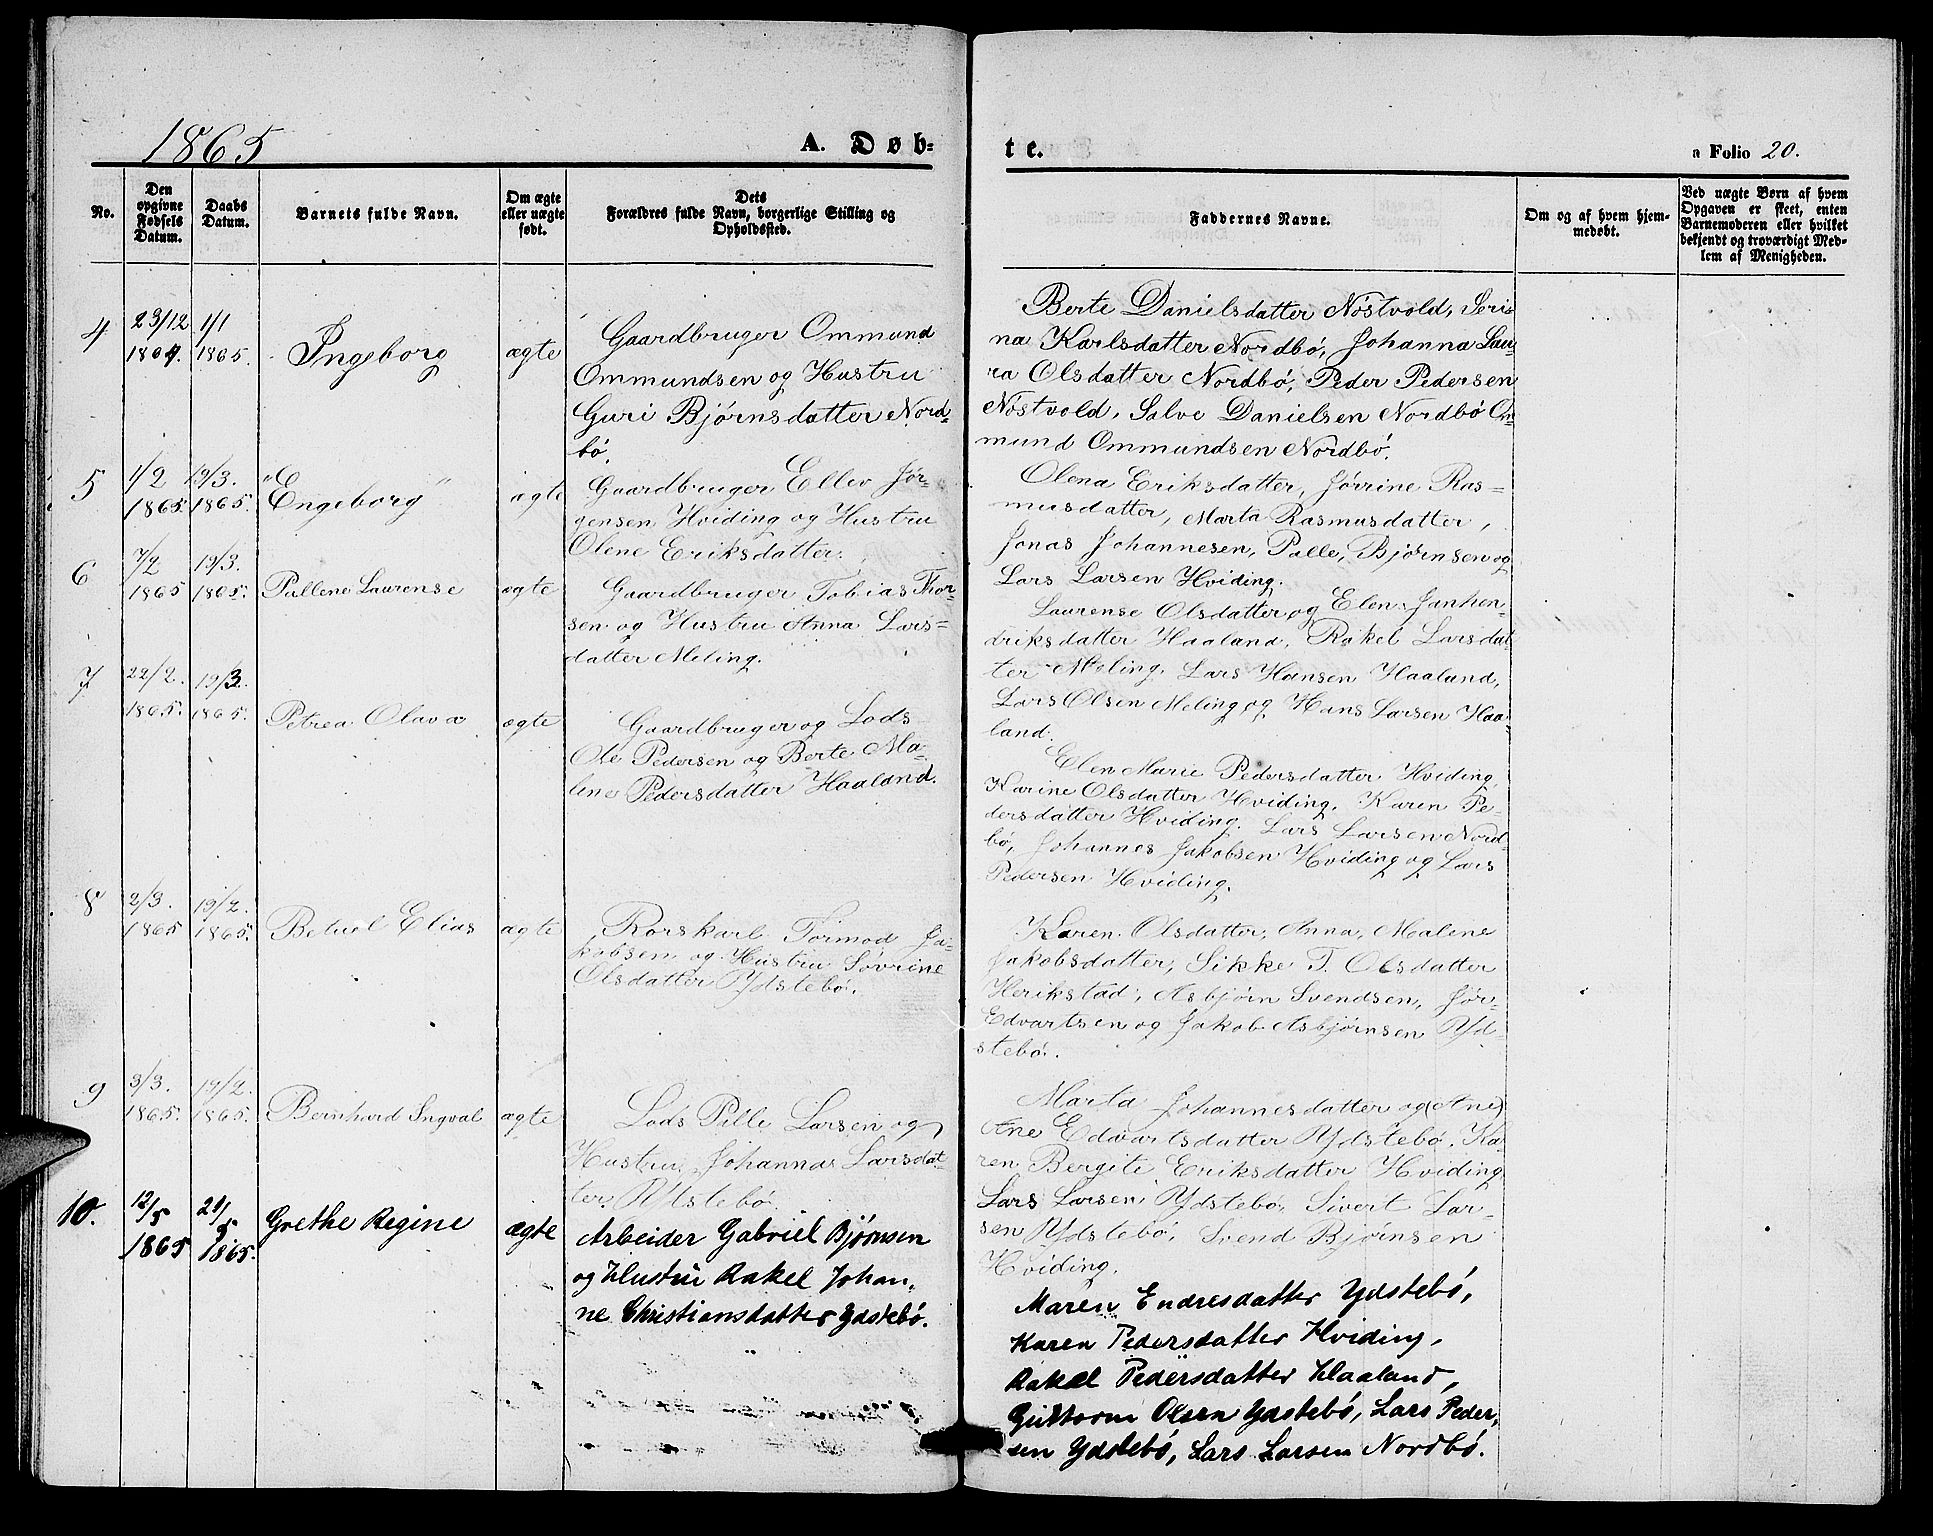 1865
A. Døb-
te.
Folio 20.
No.
Den
opgivne
Fødsels
Datum.
Daabs
Datum.
Barnets fulde Navn.
Om ægte
eller uægte
født.
Dets
Forældres fulde Navn, borgerlige Stilling og
Opholdssted.
Faddernes Navne.
Om og af hvem hjem-
medøbt.
Ved uægte Børn af hvem
Opgaven er skeet, enten
Barnemoderen eller hvilket
bekjendt og troværdigt Med-
lem af Menigheden.
4
23/12
1864.
1/1
1865.
Ingeborg
ægte
Gaardbruger Ommund
Ommundsen og Hustru
Guri Bjørnsdatter Nord-
bø.
Berte Danielsdatter Nøstvold, Seri-
na Karlsdatter Nordbø, Johanna Lau-
ra Olsdatter Nordbø, Peder Pedersen
Nøstvold, Salve Danielsen Nordbø Om-
mund Ommundsen Nordbø.
5
1/2
1865.
19/3.
1865.
"Engeborg"
ægte
Gaardbruger Ellev Jør-
gensen Hviding og Hustru
Olene Eriksdatter.
Olena Eriksdatter, Jørrine Ras-
musdatter, Marta Rasmusdatter,
Jonas Johannesen, Palle Bjørnsen og
Lars Larsen Hviding.
6
7/2
1865
19/3.
1865.
Pallene Laurense
ægte
Gaardbruger Tobias Thor-
sen og Hustru Anna Lars-
datter Meling.
Laurense Olsdatter og Elen Janhen-
driksdatter Haaland, Rakel Larsdat-
ter Meling, Lars Hansen Haaland,
Lars Olsen Meling og Hans Larsen Haa-
land.
7
22/2.
1865.
19/3.
1865.
Petrea Olava
ægte
Gaardbruger og Lods
Ole Pedersen og Berte Ma-
lene Pedersdatter Haaland.
Elen Marie Pedersdatter Hviding,
Karine Olsdatter Hviding, Karen Pe-
dersdatter Hviding. Lars Larsen Nord-
bø, Johannes Jakobsen Hviding og Lars
Pedersen Hviding.
8
2/3.
1865
19/2.
1865.
Betuel Elias
ægte
Rorskarl Tormod Ja-
kobsen og Hustru Søvrine
Olsdatter Ydstebø.
Karen Olsdatter, Anna Malene
Jakobsdatter, Sikke T. Olsdatter
Herikstad, Asbjørn Svendsen, Jør-
Edvartsen og Jakob Asbjørnsen Yd-
stebø.
9
3/3.
1865.
19/2.
1865.
Bernhard Ingval
ægte
Lods Pille Larsen og
Hustru Johanna Larsdat-
ter Ydstebø.
Marta Johannesdatter og (Ane)
Ane Edvartsdatter Ydstebø. Ka-
ren Bergite Eriksdatter Hviding
Lars Larsen Ydstebø, Sivert Lar-
sen Ydstebø, Svend Bjørnsen
Hviding.
10.
12/5
1865
21/5
1865.
Grethe Regine
ægte
Arbeider Gabriel Bjørnsen
og Hustru Rakel Johan-
ne Christiansdatter Ydstebø.
Maren Endresdatter Ydstebø,
Karen Pedersdatter Hviding,
Rakel Pedersdatter Haaland,
Guttorm Olsen Ydstebø, Lars Peder-
sen Ydstebø, Lars Larsen Nordbø.